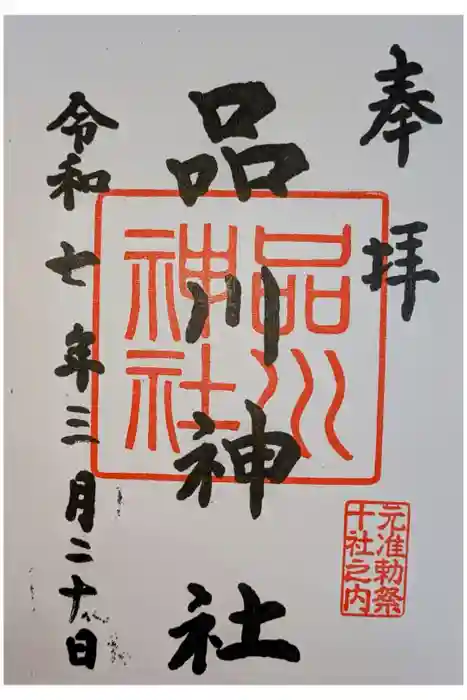 奉拝
元准勅祭
十社之内
品川神社
品川
神社
令和七年三月二十八日